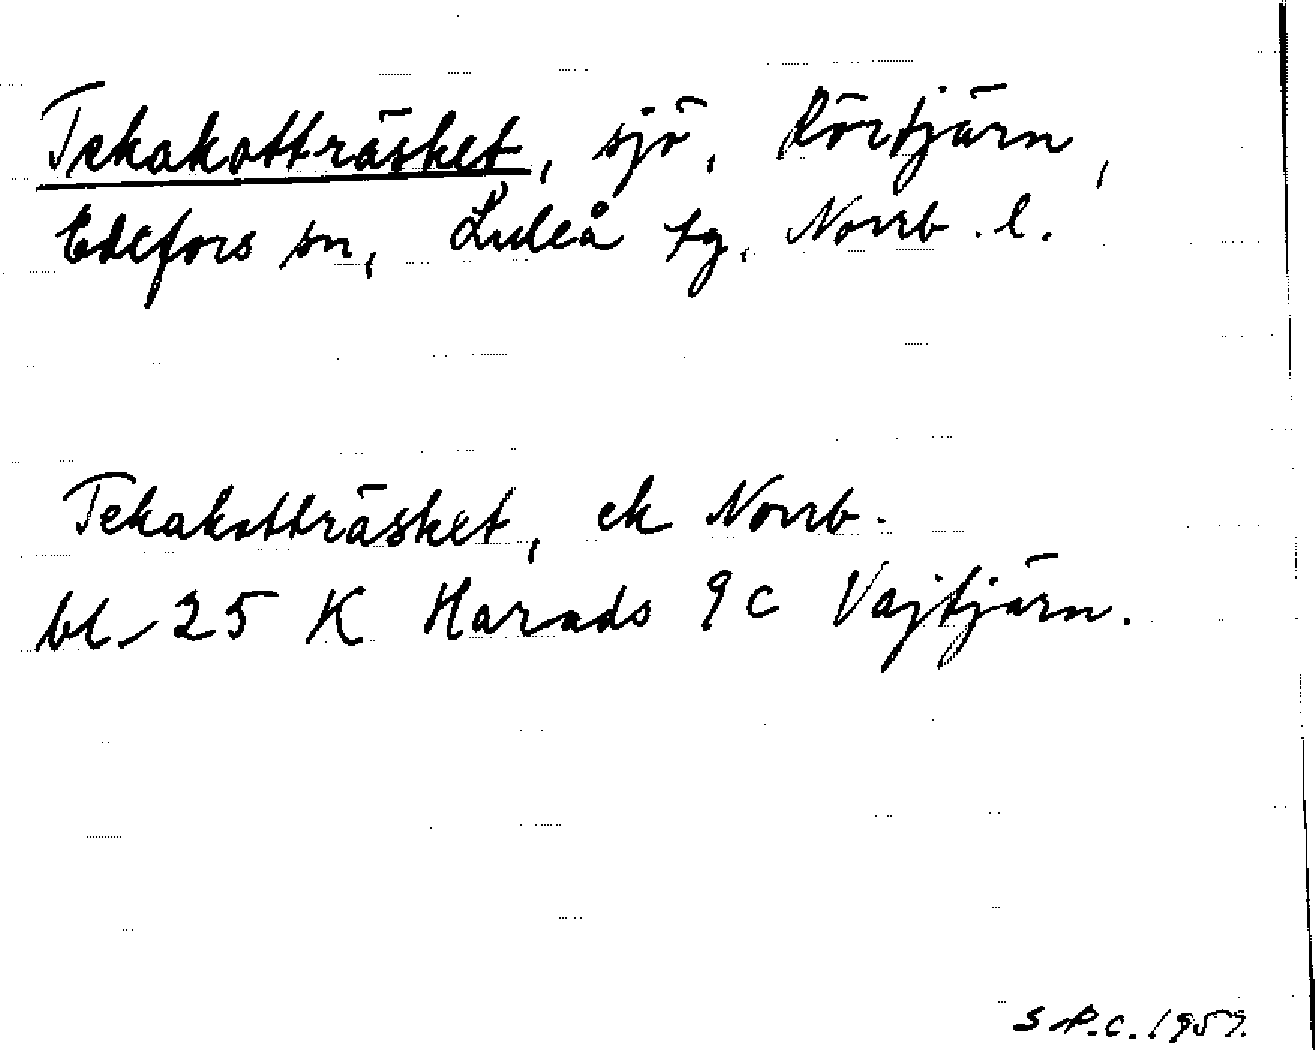 Tekakotträsket, sjö, Rörtjärn,
Edefors sn, Luleå tg. Norrb. l.
Tekakotträsket, ek Norrb.
bl. 25 K Harads 9c Vajtjärn.
S.P.C. 1959.